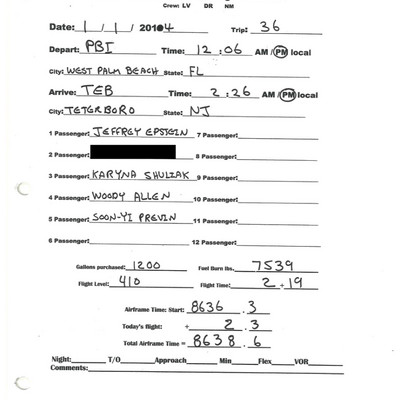 Crew: LV DR NM
Date: 1 / 1 / 2014 Trip: 36
Depart: PBI Time: 12:06 AM / PM local
City: WEST PALM BEACH State: FL
Arrive: TEB Time: 2:26 AM / PM local
City: TETERBORO State: NJ
1 Passenger: JEFFREY EPSTEIN 7 Passenger:
2 Passenger: 8 Passenger:
3 Passenger: KARYNA SHULIAK 9 Passenger:
4 Passenger: WOODY ALLEN 10 Passenger:
5 Passenger: SOON-YI PREVIN 11 Passenger:
6 Passenger: 12 Passenger:
Gallons purchased: 1200 Fuel Burn lbs. 7539
Flight Level: 410 Flight Time: 2 + 19
Airframe Time: Start: 8636 . 3
Today's flight: + 2 . 3
Total Airframe Time = 8638 . 6
Night: T/O Approach Min Flex VOR
Comments: